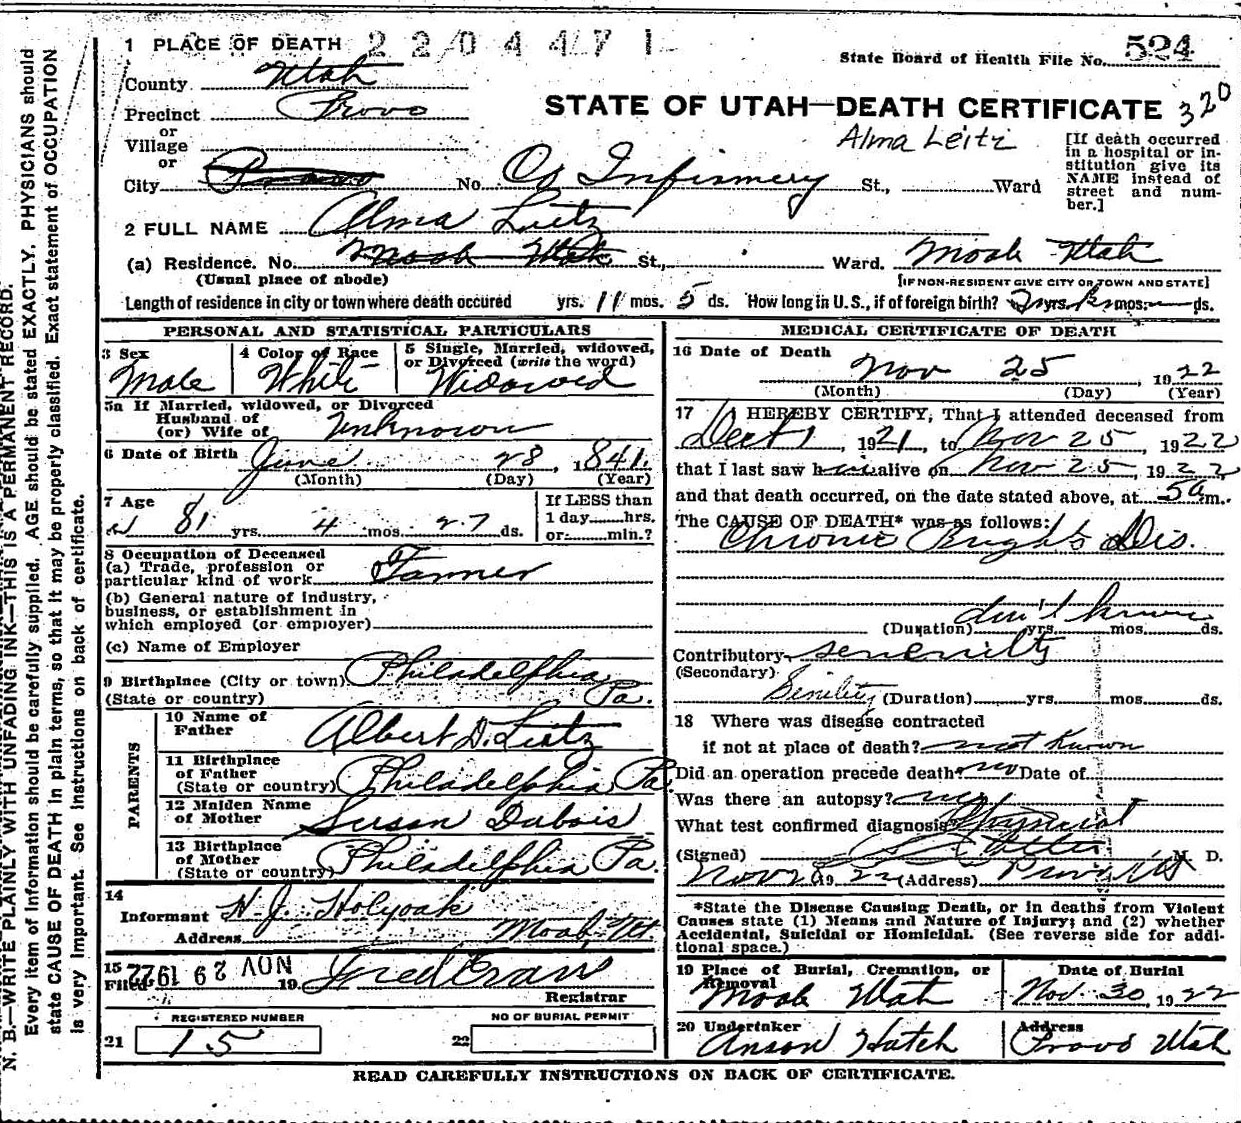 N. B.—WRITE PLAINLY WITH UNFADING INK—THIS IS A PERMANENT RECORD.
Every item of information should be carefully supplied. AGE should be stated EXACTLY. PHYSICIANS should
state CAUSE OF DEATH in plain terms, so that it may be properly classified. Exact statement of OCCUPATION
is very important. See instructions on back of certificate.
1 PLACE OF DEATH 2204471
State Board of Health File No. 524
County Utah
Precinct Provo
STATE OF UTAH—DEATH CERTIFICATE 320
or
Village
or
Alma Leitz
[If death occurred
in a hospital or in-
stitution give its
NAME instead of
street and num-
ber.]
City Provo No. Co Infirmery St., Ward
2 FULL NAME Alma Lietz
(a) Residence. No. Moab Utah St., Ward. Moab Utah
(Usual place of abode) [IF NON-RESIDENT GIVE CITY OR TOWN AND STATE]
Length of residence in city or town where death occured yrs. 11 mos. 5 ds. How long in U.S., if of foreign birth? yrs. mos. ds.
PERSONAL AND STATISTICAL PARTICULARS
3 Sex
Male
4 Color or Race
White
5 Single, Married, widowed,
or Divorced (write the word)
Widowed
5a If Married, widowed, or Divorced
Husband of
(or) Wife of Unknown
6 Date of Birth June 28, 1841.
(Month) (Day) (Year)
7 Age
81 yrs. 4 mos. 27 ds.
If LESS than
1 day hrs.
or min.?
8 Occupation of Deceased
(a) Trade, profession or
particular kind of work Farmer
(b) General nature of Industry,
business, or establishment in
which employed (or employer)
(c) Name of Employer
9 Birthplace (City or town) Philadelphia
(State or country) Pa.
PARENTS
10 Name of
Father Albert D. Lietz
11 Birthplace
of Father
(State or country) Philadelphia Pa.
12 Maiden Name
of Mother Susan Dubois
13 Birthplace
of Mother
(State or country) Philadelphia Pa.
14
Informant H. J. Holyoak
Address Moab, Ut.
15
Filed NOV 29 1922 19 Fred Evans
Registrar
REGISTERED NUMBER
21 15
NO OF BURIAL PERMIT
22
MEDICAL CERTIFICATE OF DEATH
16 Date of Death
Nov 25, 1922
(Month) (Day) (Year)
17 I HEREBY CERTIFY, That I attended deceased from
Dect 1, 1921, to Nov 25, 1922
that I last saw him alive on Nov 25, 1922,
and that death occurred, on the date stated above, at 5a m.
The CAUSE OF DEATH* was as follows:
Chronic Brights Dis.
don't know
(Duration) yrs. mos. ds.
Contributory senenilty
(Secondary)
Senility (Duration) yrs. mos. ds.
18 Where was disease contracted
if not at place of death? not known
Did an operation precede death? no Date of
Was there an autopsy? no
What test confirmed diagnosis?
(Signed) M. D.
Nov 28, 1922 (Address) Provo Ut
*State the Disease Causing Death, or in deaths from Violent
Causes state (1) Means and Nature of Injury; and (2) whether
Accidental, Suicidal or Homicidal. (See reverse side for addi-
tional space.)
19 Place of Burial, Cremation, or
Removal
Moab Utah
Date of Burial
Nov. 30, 1922
20 Undertaker
Anson Hatch
Address
Provo Utah
READ CAREFULLY INSTRUCTIONS ON BACK OF CERTIFICATE.